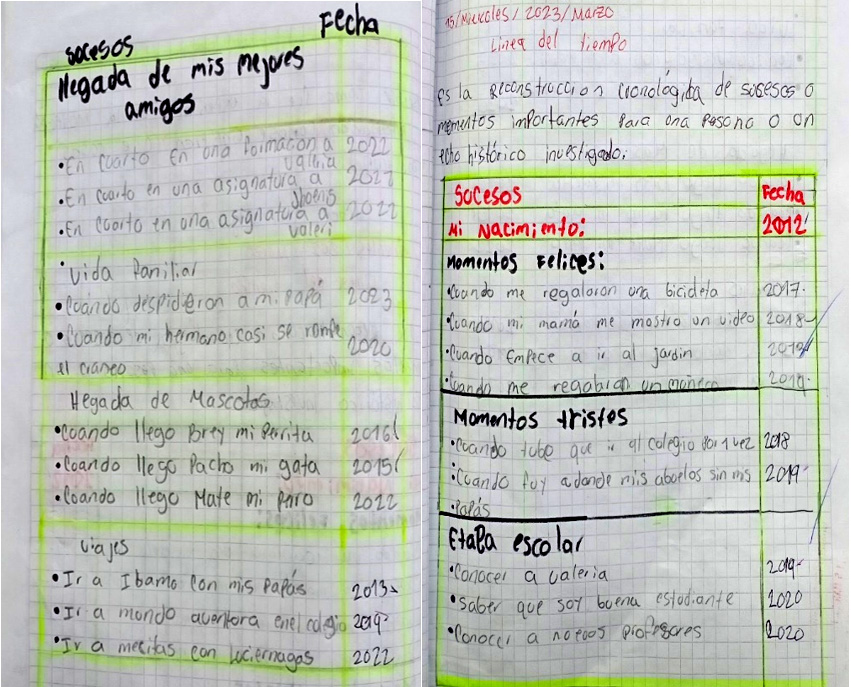 Sucesos Fecha
llegada de mis mejores
amigos
•En cuarto En una formacion a 2022
valeria
•En cuarto en una asignatura a 2022
•En cuarto en una asignatura a 2022
valeri
•Vida familiar
•Cuando despidieron a mi papá 2023
•Cuando mi hermano casi se rompe 2020
el craneo
llegada de Mascotas
•Cuando llego Brey mi perrita 2016
•Cuando llego Pacho mi gata 2015
•Cuando llego Mate mi perro 2022
viajes
•Ir a Ibamo con mis papás 2013
•Ir a mundo aventora en el colegio 2019
•Ir a mesitas con luciernagas 2022
15/Miercoles/2023/Marzo
Linea del tiempo
Es la Reconstruccion cronológica de sucesos o
momentos importantes para una persona o un
echo histórico investigado.
Sucesos Fecha
Mi Nacimiento: 2012
Momentos Felices:
•Cuando me regalaron una bicicleta 2017
•Cuando mi mamá me mostro un video 2018
•Cuando Empece a ir al jardin
•Cuando me regalaron un muñeco 2019
Momentos tristes
•Cuando tube que ir al colegio por 1 vez 2018
•Cuando fuy a donde mis abuelos sin mis 2019
•Papás
Etapa escolar
•Conocer a valeria 2019
•Saber que soy buena estudiante 2020
•Conocer a nuevos profesores 2020